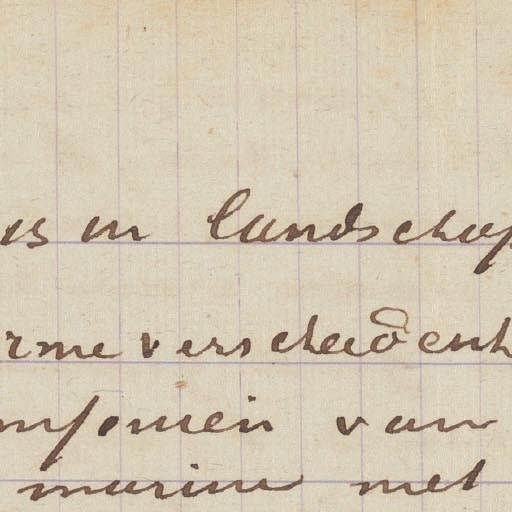 is in landschap
rme verscheidenh
mfonieën van
marine met